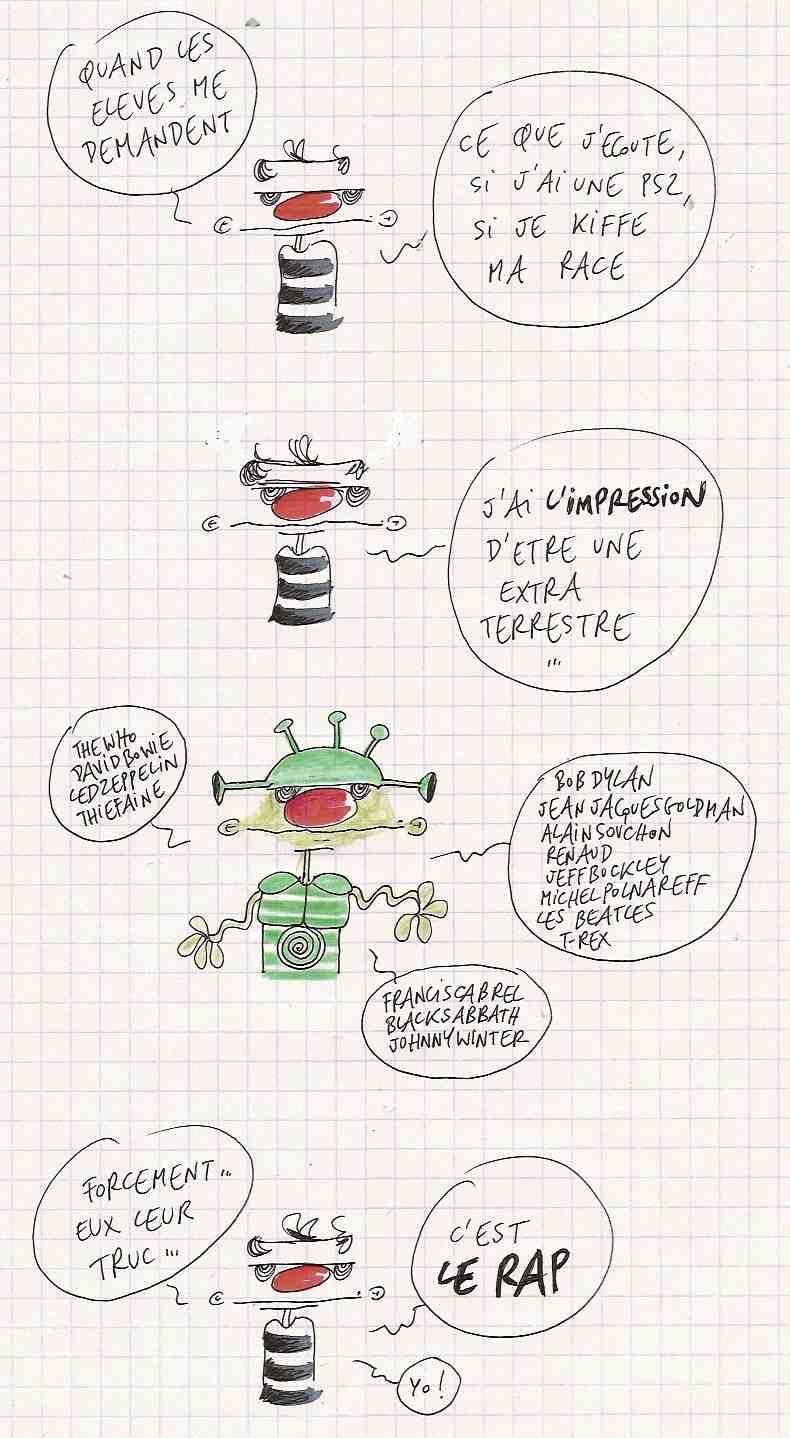 QUAND LES
ELEVES ME
DEMANDENT
CE QUE J'ECOUTE,
SI J'AI UNE PS2,
SI JE KIFFE
MA RACE
J'AI L'IMPRESSION
D'ETRE UNE
EXTRA
TERRESTRE
...
THE WHO
DAVID BOWIE
LED ZEPPELIN
THIEFAINE
BOB DYLAN
JEAN JACQUES GOLDMAN
ALAIN SOUCHON
RENAUD
JEFF BUCKLEY
MICHEL POLNAREFF
LES BEATLES
T-REX
FRANCIS CABREL
BLACK SABBATH
JOHNNY WINTER
FORCEMENT...
EUX LEUR
TRUC...
C'EST
LE RAP
YO!